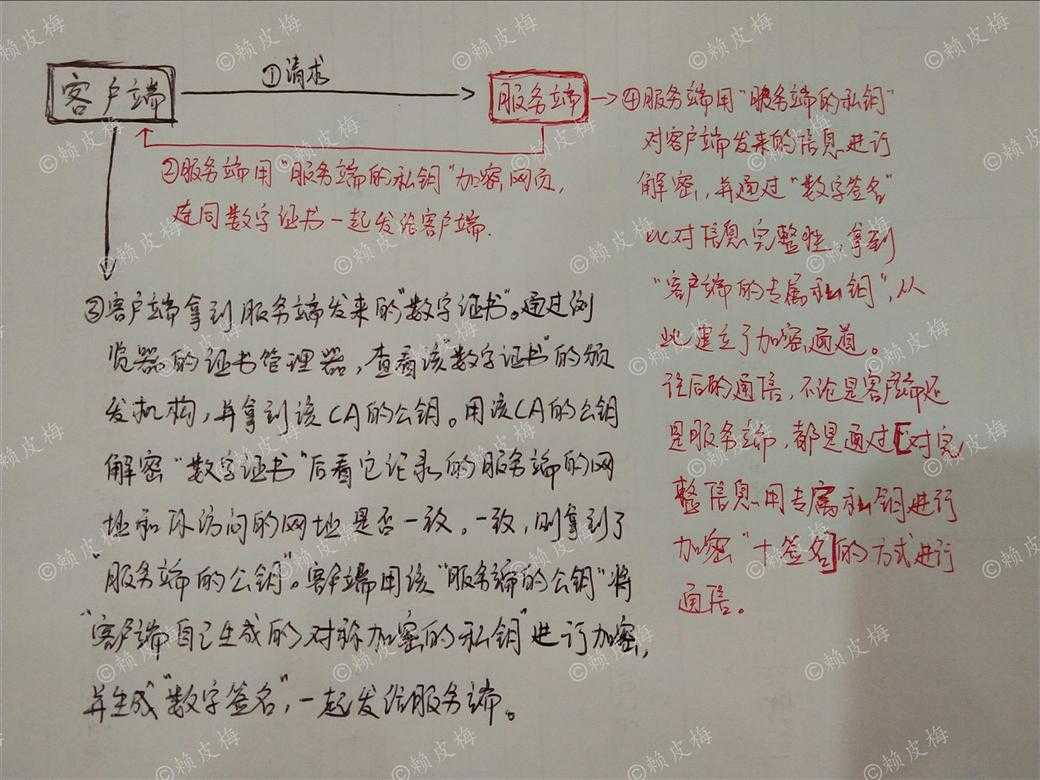 客户端
①请求
服务端
②服务端用"服务端的私钥"加密网页,
连同数字证书一起发给客户端.
③客户端拿到服务端发来的"数字证书"。通过浏
览器的证书管理器,查看该"数字证书"的颁
发机构,并拿到该CA的公钥。用该CA的公钥
解密"数字证书"后看它记录的服务端的网
址和你访问的网址是否一致。一致,则拿到了
"服务端的公钥"。客户端用该"服务端的公钥"将
"客户端自己生成的对称加密的私钥"进行加密,
并生成"数字签名",一起发给服务端。
④服务端用"服务端的私钥"
对客户端发来的信息进行
解密,并通过"数字签名"
比对信息完整性,拿到
"客户端的专属私钥",从
此建立了加密通道。
往后的通信,不论是客户端还
是服务端,都是通过[对完
整信息用专属私钥进行
加密"+签名]的方式进行
通信。
©赖皮梅